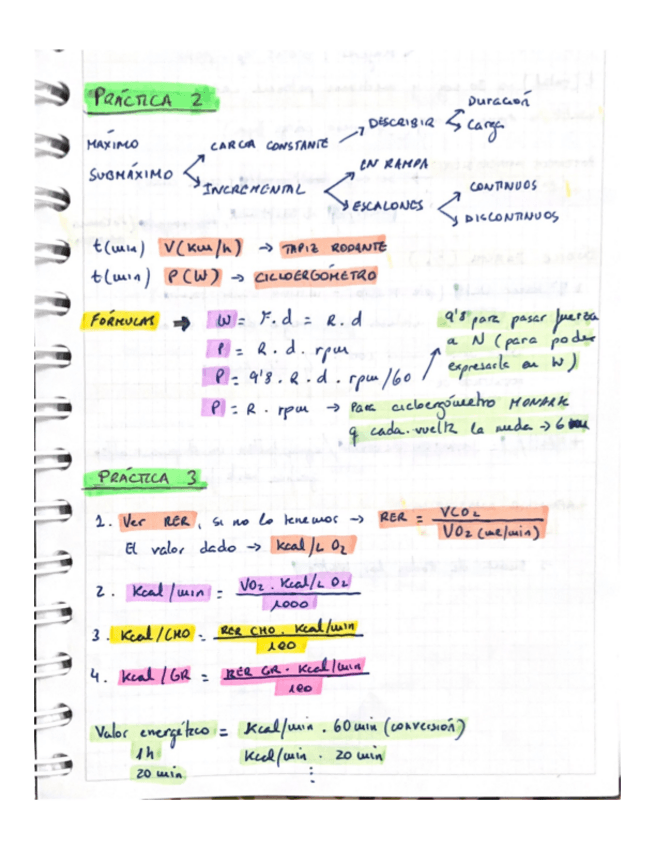 PRÁCTICA 2
MÁXIMO
SUBMÁXIMO
CARGA CONSTANTE → DESCRIBIR
Duración
Carga
INCREMENTAL
EN RAMPA
ESCALONES
CONTINUOS
DISCONTINUOS
t(min) V(Km/h) → TAPIZ RODANTE
t(min) P(W) → CICLOERGÓMETRO
FÓRMULAS → W = F.d = R.d
P = R.d.rpm
P = 9'8.R.d.rpm/60
9'8 para pasar fuerza
a N (para poder
expresarla en W)
P = R.rpm → Para cicloergómetro MONARK
q cada vuelta la rueda → 6
PRÁCTICA 3
1. Ver RER, si no lo tenemos → RER = VCO2 / VO2 (ml/min)
El valor dado → kcal/L O2
2. Kcal/min = VO2 . Kcal/L O2 / 1000
3. Kcal/CHO = RER CHO . Kcal/min / 100
4. Kcal/GR = RER GR . Kcal/min / 100
Valor energético = Kcal/min . 60 min (conversión)
1h Kcal/min . 20 min
20 min ⋮